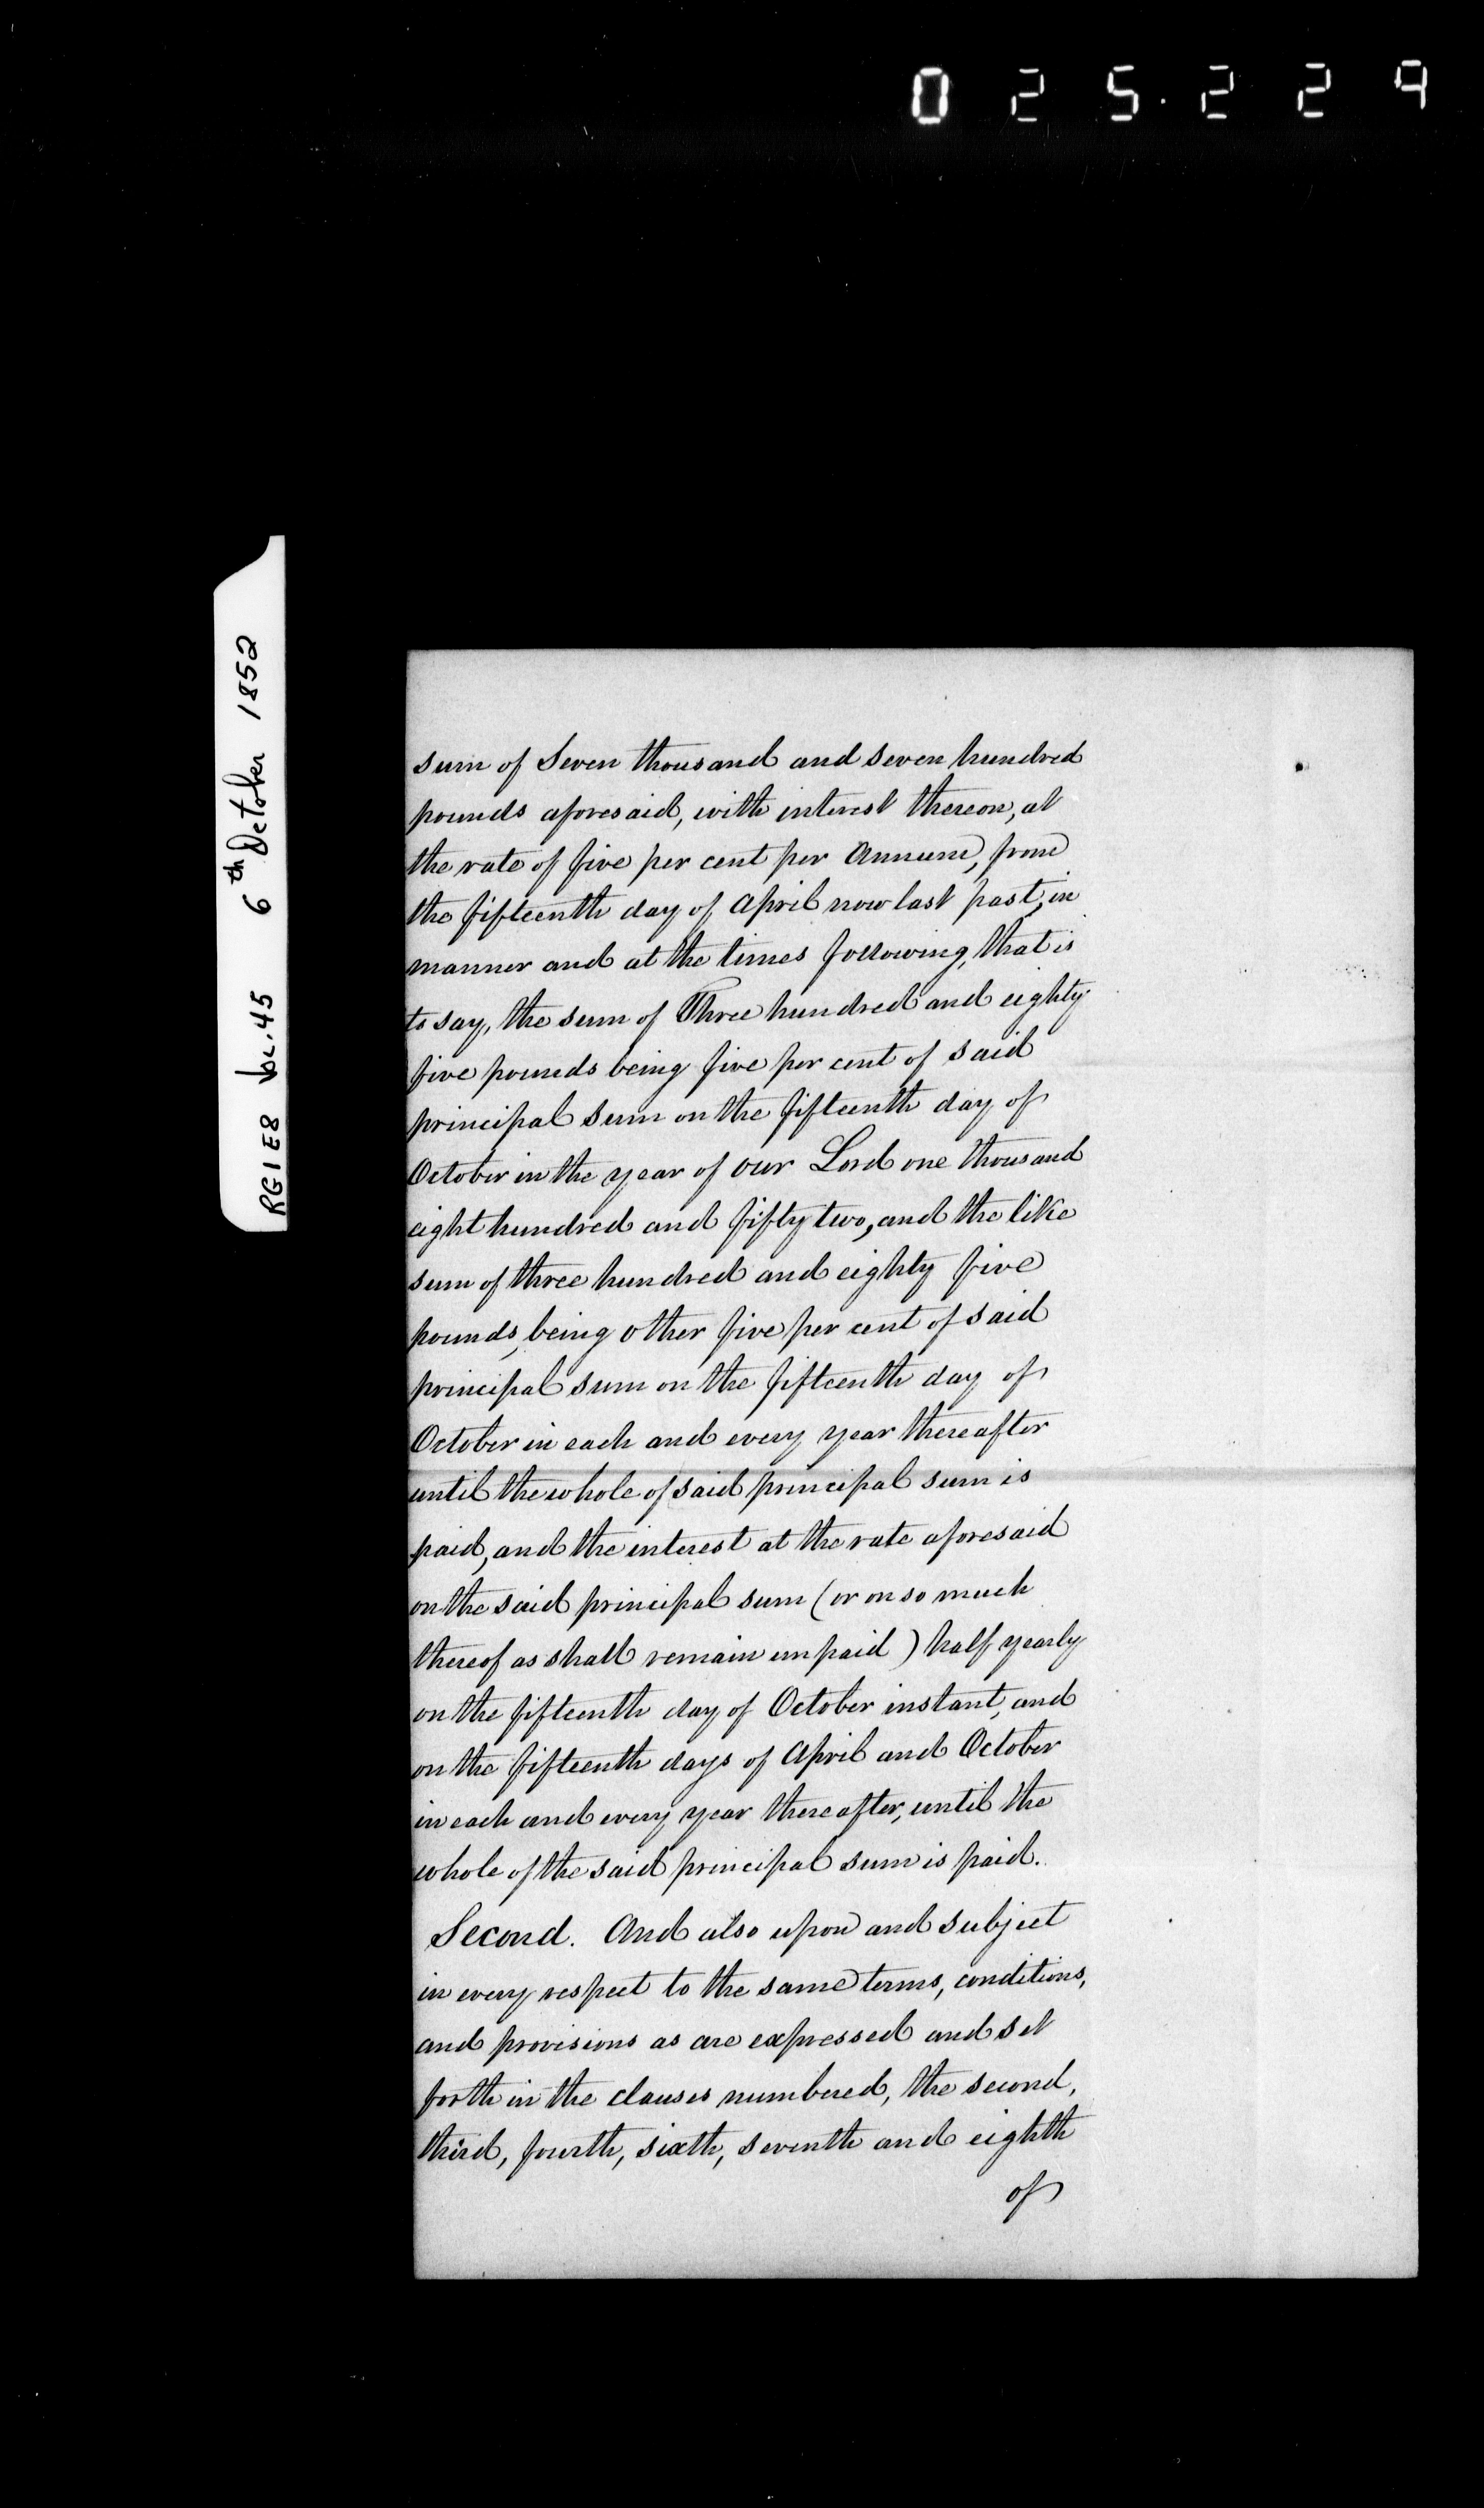 025.229
RG1E8 Vol. 45 6th October 1852
sum of Seven thousand and seven hundred
pounds aforesaid, with interest thereon, at
the rate of five per cent per Annum, from
the fifteenth day of April now last past, in
manner and at the times following, that is
to say, the sum of Three hundred and eighty
five pounds being five per cent of said
principal sum on the fifteenth day of
October in the year of our Lord one thousand
eight hundred and fifty two, and the like
sum of three hundred and eighty five
pounds, being other five per cent of said
principal sum on the fifteenth day of
October in each and every year thereafter
until the whole of said principal sum is
paid, and the interest at the rate aforesaid
on the said principal sum (or on so much
thereof as shall remain unpaid) half yearly
on the fifteenth day of October instant, and
on the fifteenth days of April and October
in each and every year thereafter, until the
whole of the said principal sum is paid.
Second. And also upon and subject
in every respect to the same terms, conditions,
and provisions as are expressed and set
forth in the clauses numbered, the second,
third, fourth, sixth, seventh and eighth
of